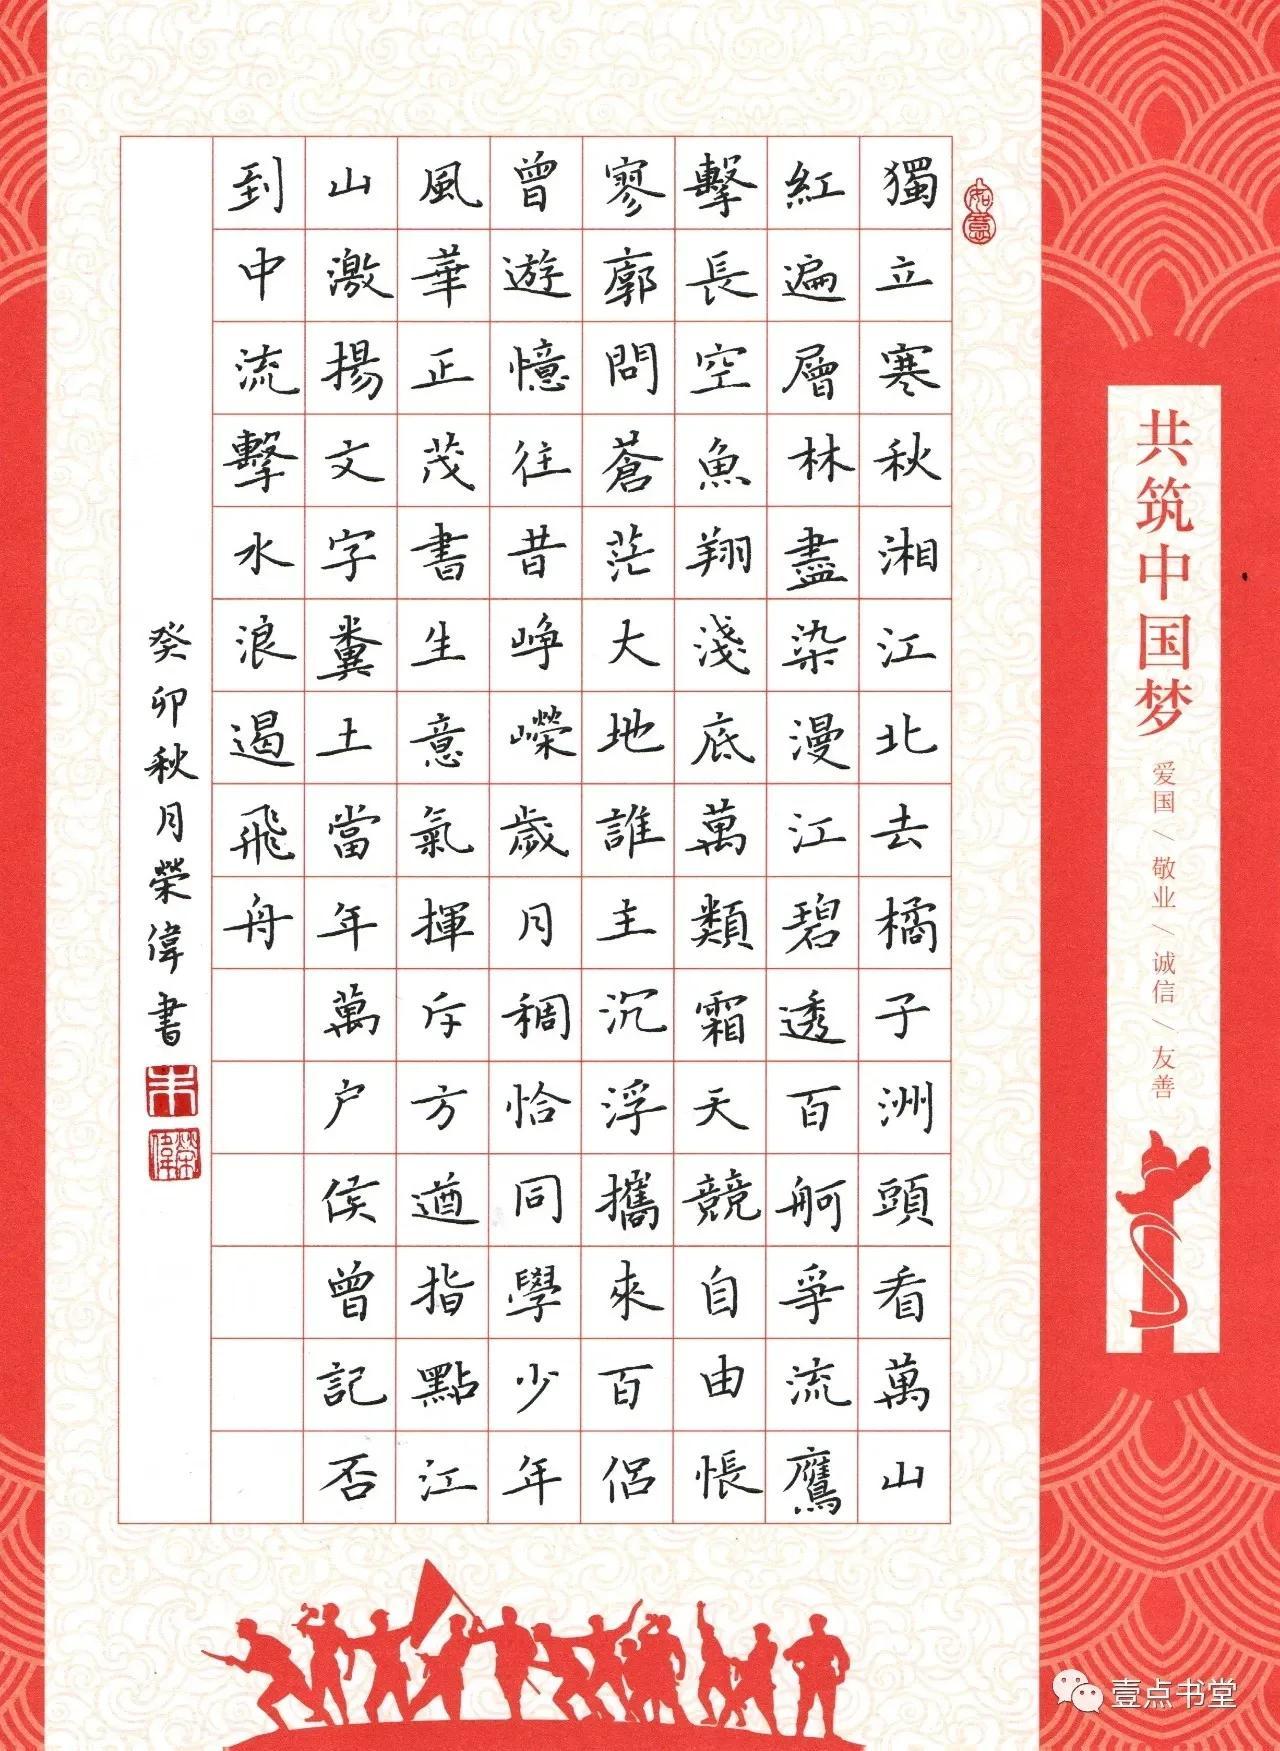 如意
獨立寒秋湘江北去橘子洲頭看萬山
紅遍層林盡染漫江碧透百舸爭流鷹
擊長空魚翔淺底萬類霜天競自由悵
寥廓問蒼茫大地誰主沉浮攜來百侶
曾遊憶往昔崢嶸歲月稠恰同學少年
風華正茂書生意氣揮斥方遒指點江
山激揚文字糞土當年萬户侯曾記否
到中流擊水浪遏飛舟
癸卯秋月榮偉書
榮偉
共筑中国梦
爱国/敬业/诚信/友善
壹点书堂